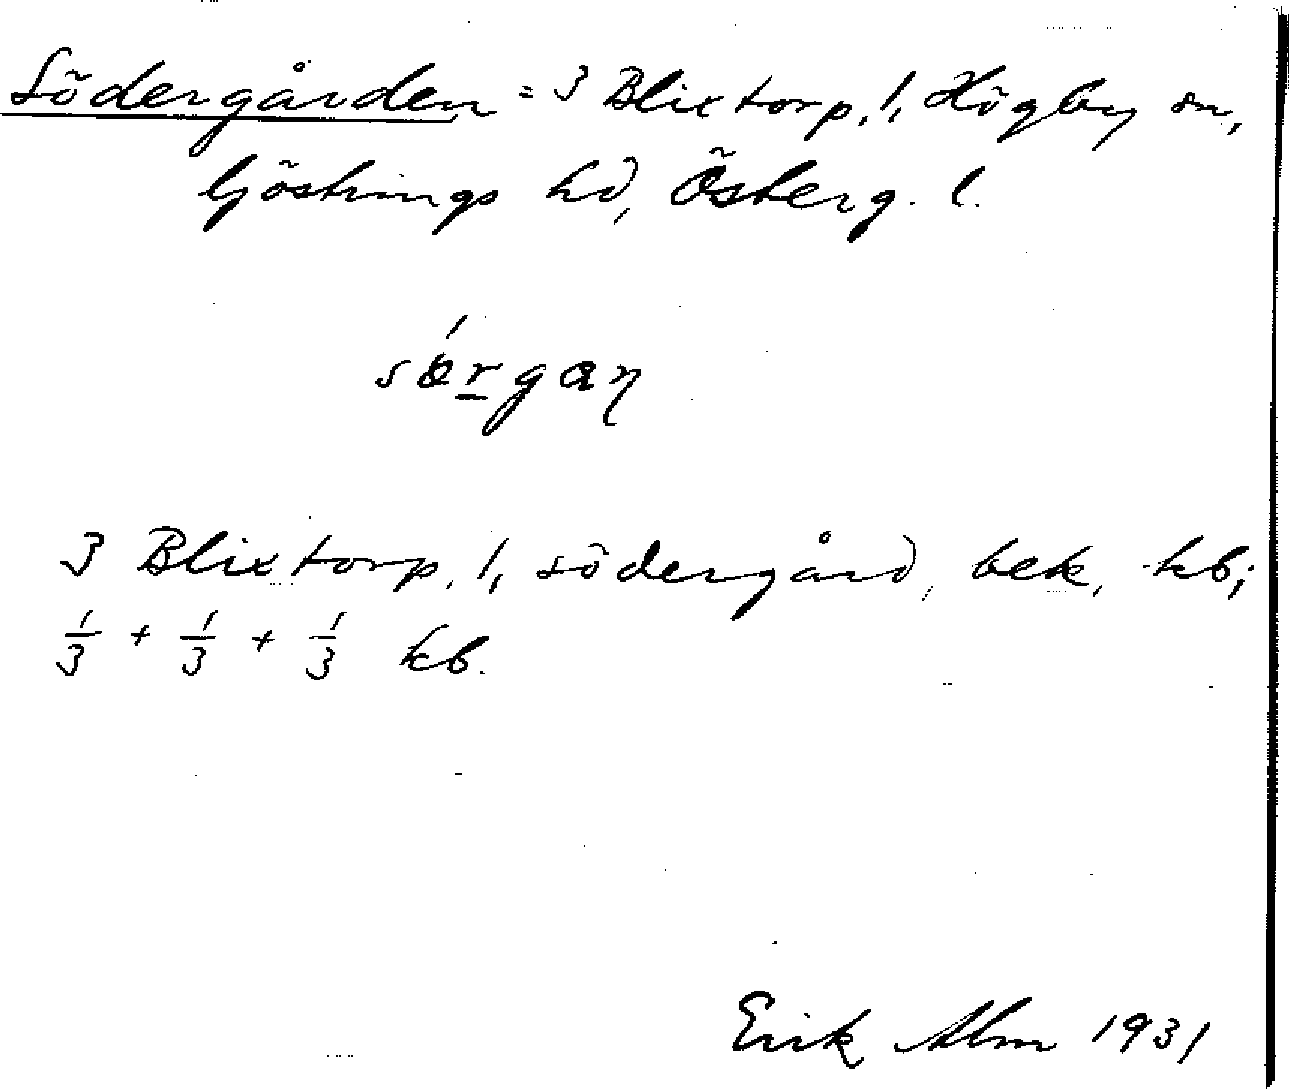 Södergården = 3 Blixtorp, 1, Högby sn,
Göstrings hd, Österg. l.
3 Blixtorp, 1, södergård, bek. kb;
1/3 + 1/3 + 1/3 kb.
Erik Alm 1931